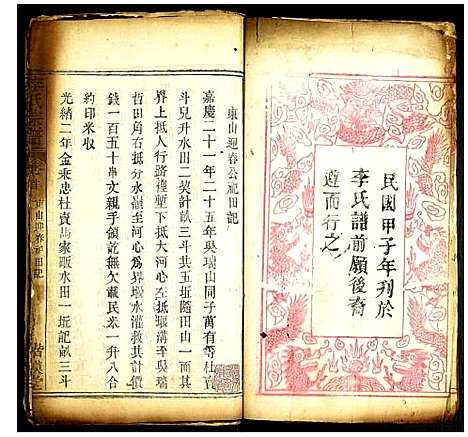 民國甲子年刊於
李氏譜前願後裔
遵而行之
東山迎春公祀田記
嘉慶二十一年二十五年吳瑞山同子萬有等杜賣
斗兒升水田二契計畝三斗共五坵隨田山一面其
界上抵人行路裡壋下抵大河心右抵山嶺至吳瑞
哲田角右抵分水嶺至河心為界堰水灌救共計價
錢一百五十串文親手領訖無欠載民米一升八合
約印米收
光緒二年金乘忠杜賣馬家畈水田一坵記畝三斗